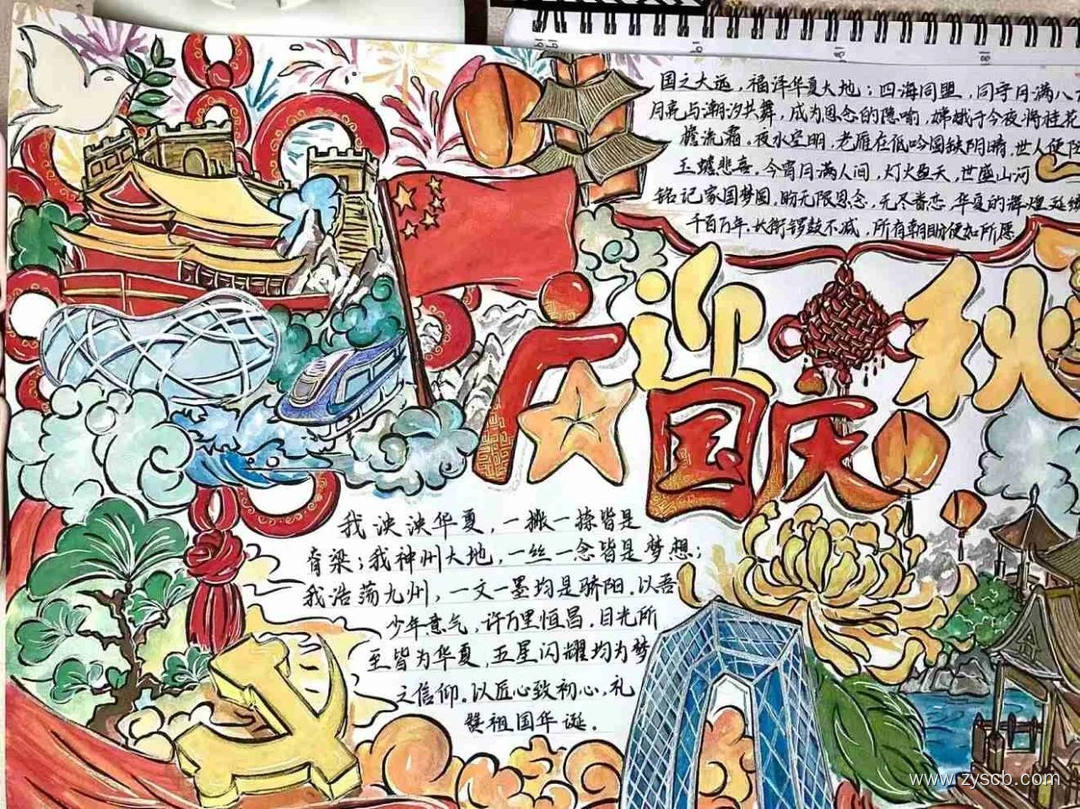 国之大远，福泽华夏大地；四海同盟，同守月满八
月亮与潮汐共舞，成为思念的隐喻，嫦娥于今夜将桂花
流霜，夜水空明，老雁在低吟圆缺阴晴，世人便
玉蟾悲喜。今宵月满人间，灯火盈天，世盛山河
铭记家国梦圆，盼无限思念，无尽眷恋，华夏的辉煌延续
千百万年，长街锣鼓不减，所有朝盼便如所愿
迎 秋
国庆
我泱泱华夏，一撇一捺皆是
脊梁；我神州大地，一丝一念皆是梦想；
我浩荡九州，一文一墨均是骄阳。以吾
少年意气，许万里恒昌。目光所
至皆为华夏，五星闪耀均为梦
之信仰。以匠心致初心，礼
赞祖国华诞。
www.zyscb.com